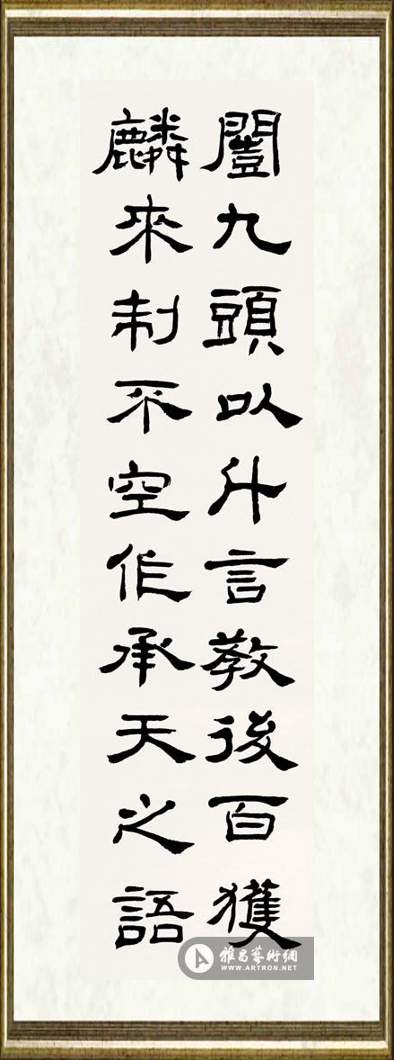 闓九頭以斗言教後百獲
麟來制不空作承天之語
雅昌藝術網
WWW.ARTRON.NET